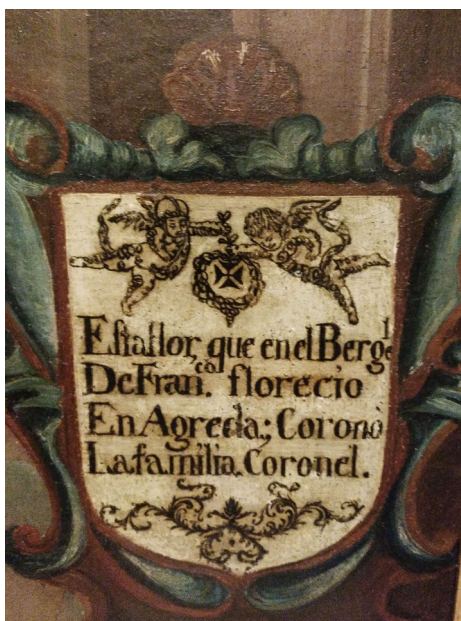 Esta flor, que en el Bergel
De Fran.co florecio
En Agreda; Coronò
La familia Coronel.